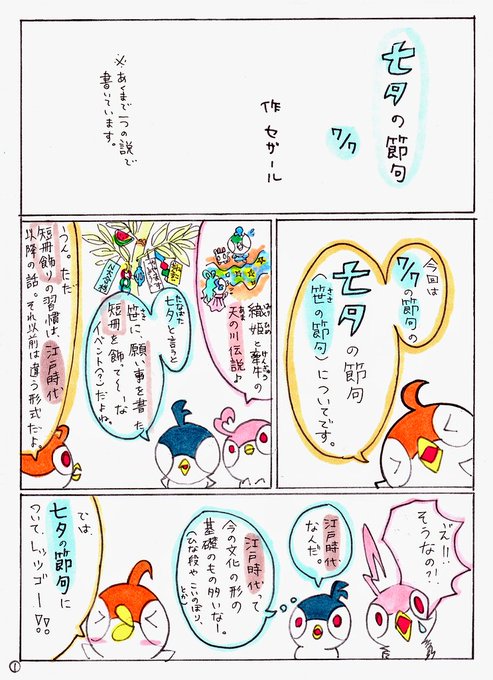 七夕の節句
7/7
作 セガール
※あくまで一つの説で
書いています。
今回は
7/7の節句の
七夕の節句
(笹の節句)についてです。
ささ
織姫と牽牛の
天の川伝説♪
たなばた
七夕と言うと
ささ
笹に願い事を書た
短冊を飾って〜な
イベント(?)だよね。
うん。ただ
短冊飾りの習慣は、江戸時代
以降の話。それ以前は違う形式だよ。
そうなの?!
江戸時代
なんだ。
江戸時代って
今の文化の形の
基礎のもの多いなー。
こいのぼり、
とか
では、
七夕の節句に
ついて、レッツゴー!!
①